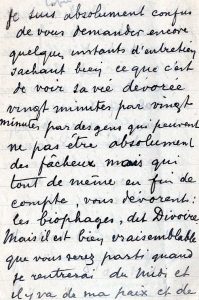 Je suis absolument confus
de vous demander encore
quelques instants d'entretien
sachant bien ce que c'est
de voir sa vie dévorée
vingt minutes par vingt
minutes par des gens qui peuvent
ne pas être absolument
des fâcheux mais qui
tout de même en fin de
compte, vous dévorent:
les biophages, dit Divoire
Mais il est bien vraisemblable
que vous serez parti quand
je rentrerai du Midi et
il y va de ma paix et de